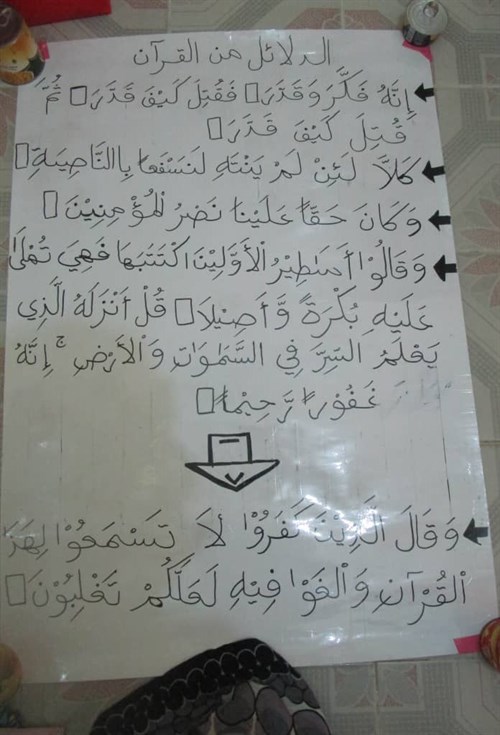 الدلائل من القرآن
إِنَّهُ فَكَّرَ وَقَدَّرَ فَقُتِلَ كَيْفَ قَدَّرَ ثُمَّ
قُتِلَ كَيْفَ قَدَّرَ
كَلَّا لَئِنْ لَمْ يَنْتَهِ لَنَسْفَعًا بِالنَّاصِيَةِ
وَكَانَ حَقًّا عَلَيْنَا نَصْرُ الْمُؤْمِنِيْنَ
وَقَالُوْا أَسَاطِيْرُ الْأَوَّلِيْنَ اكْتَتَبَهَا فَهِيَ تُمْلَىٰ
عَلَيْهِ بُكْرَةً وَّأَصِيْلًا قُلْ أَنْزَلَهُ الَّذِي
يَعْلَمُ السِّرَّ فِي السَّمٰوٰتِ وَالْأَرْضِ ۚ إِنَّهُ
غَفُوْرًا رَّحِيْمًا
وَقَالَ الَّذِيْنَ كَفَرُوْا لَا تَسْمَعُوْا لِهَذَا
الْقُرْآنِ وَالْغَوْا فِيْهِ لَعَلَّكُمْ تَغْلِبُوْنَ